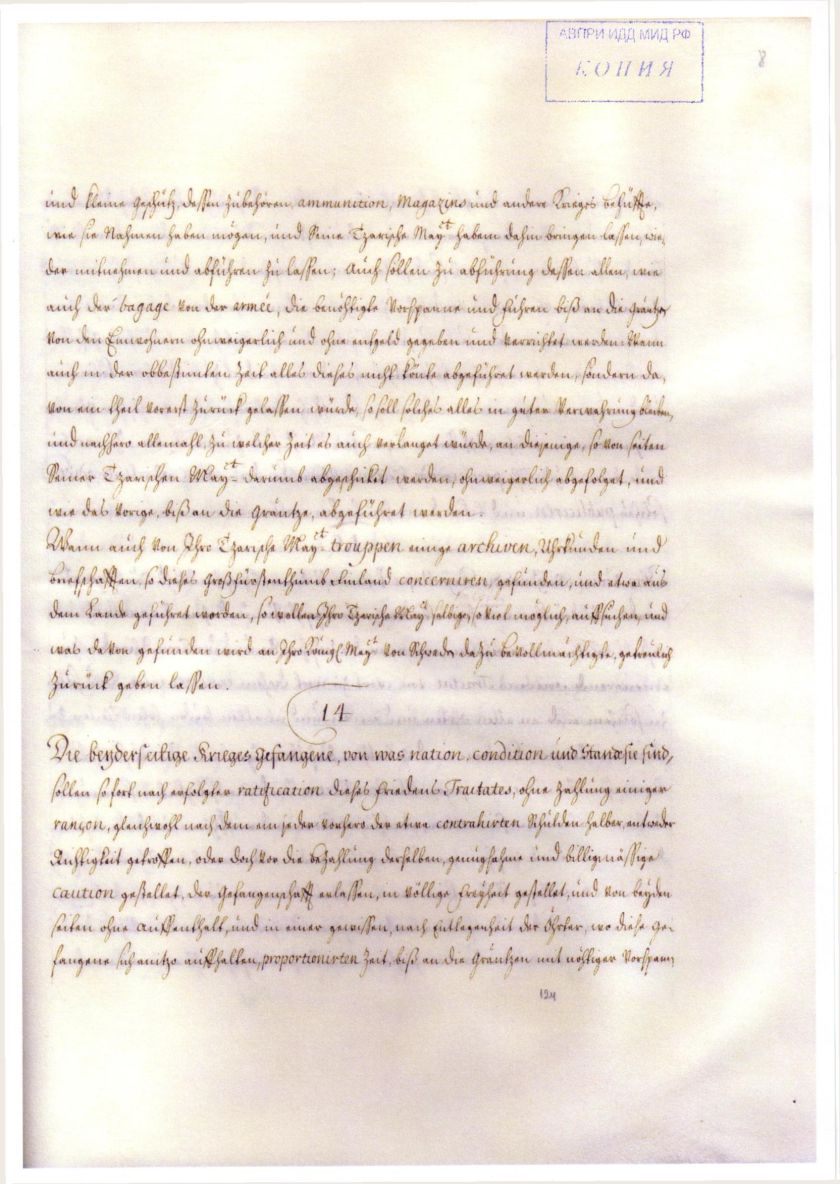 АВПРИ ИДД МИД РФ
КОПИЯ
8
und kleine Geschütz, dessen Zubehören, ammunition, Magazins und andere Krieges behüffe,
wie sie Nahmen haben mögen, und Seine Tzarische Mayt. habem dahin bringen lassen, wie,
der mitnehmen und abführen zu lassen; Auch sollen zu abführung dessen allen, wie
auch der bagage von der armée, die benöhtigte Vorspanne und Fuhren biß an die Gräntze
von den Einwohnern ohnweigerlich und ohne entgeld gegeben und verrichtet werden. Wann
auch in der obbestimten Zeit alles dieses nicht könte abgeführet werden, sondern da,
von ein theil vorerst zurück gelassen würde, so soll solches alles in guter Verwahrung bleiben,
und nachhero allemahl, zu welcher Zeit es auch verlanget würde, an diejenige, so von seiten
Seiner Tzarischen Mayt. darumb abgeschicket werden, ohnweigerlich abgefolget, und
wie das vorige, biß an die Gräntze, abgeführet werden.
Wann auch von Ihro Tzarische Mayt. trouppen einige archiven, Uhrkunden und
Briefschafften, so dieses Großfürstenthumb Finland concerniren, gefunden, und etwa aus
dem Lande geführet worden, so wollen Ihro Tzarische Mayt. selbige, so viel möglich, auffsuchen, und
was davon gefunden wird an Ihro Königl. Mayt. von Schweden dazu bevollmächtigte, getreulich
zurück geben lassen.
14
Die beyderseitige Krieges Gefangene, von was nation, condition und Stande sie sind,
sollen so fort nach erfolgter ratification dieses Friedens Tractates, ohne Zahlung einiger
rançon, gleichwohl nach dem ein jeder vorhero der etwa contrahirten Schulden halber, entweder
Richtigkeit getroffen, oder doch vor die bezahlung derselben, genugsahme und billigmässige
caution gestellet, der Gefangenschafft erlassen, in völlige Freyheit gestellet, und von beyden
seiten ohne auffenthalt, und in einer gewissen, nach Entlegenheit der Öhrter, wo diese Ge,
fangene sich anitzo auffhalten, proportionirten Zeit, biß an die Gräntzen mit nöhtiger Vorspann
124